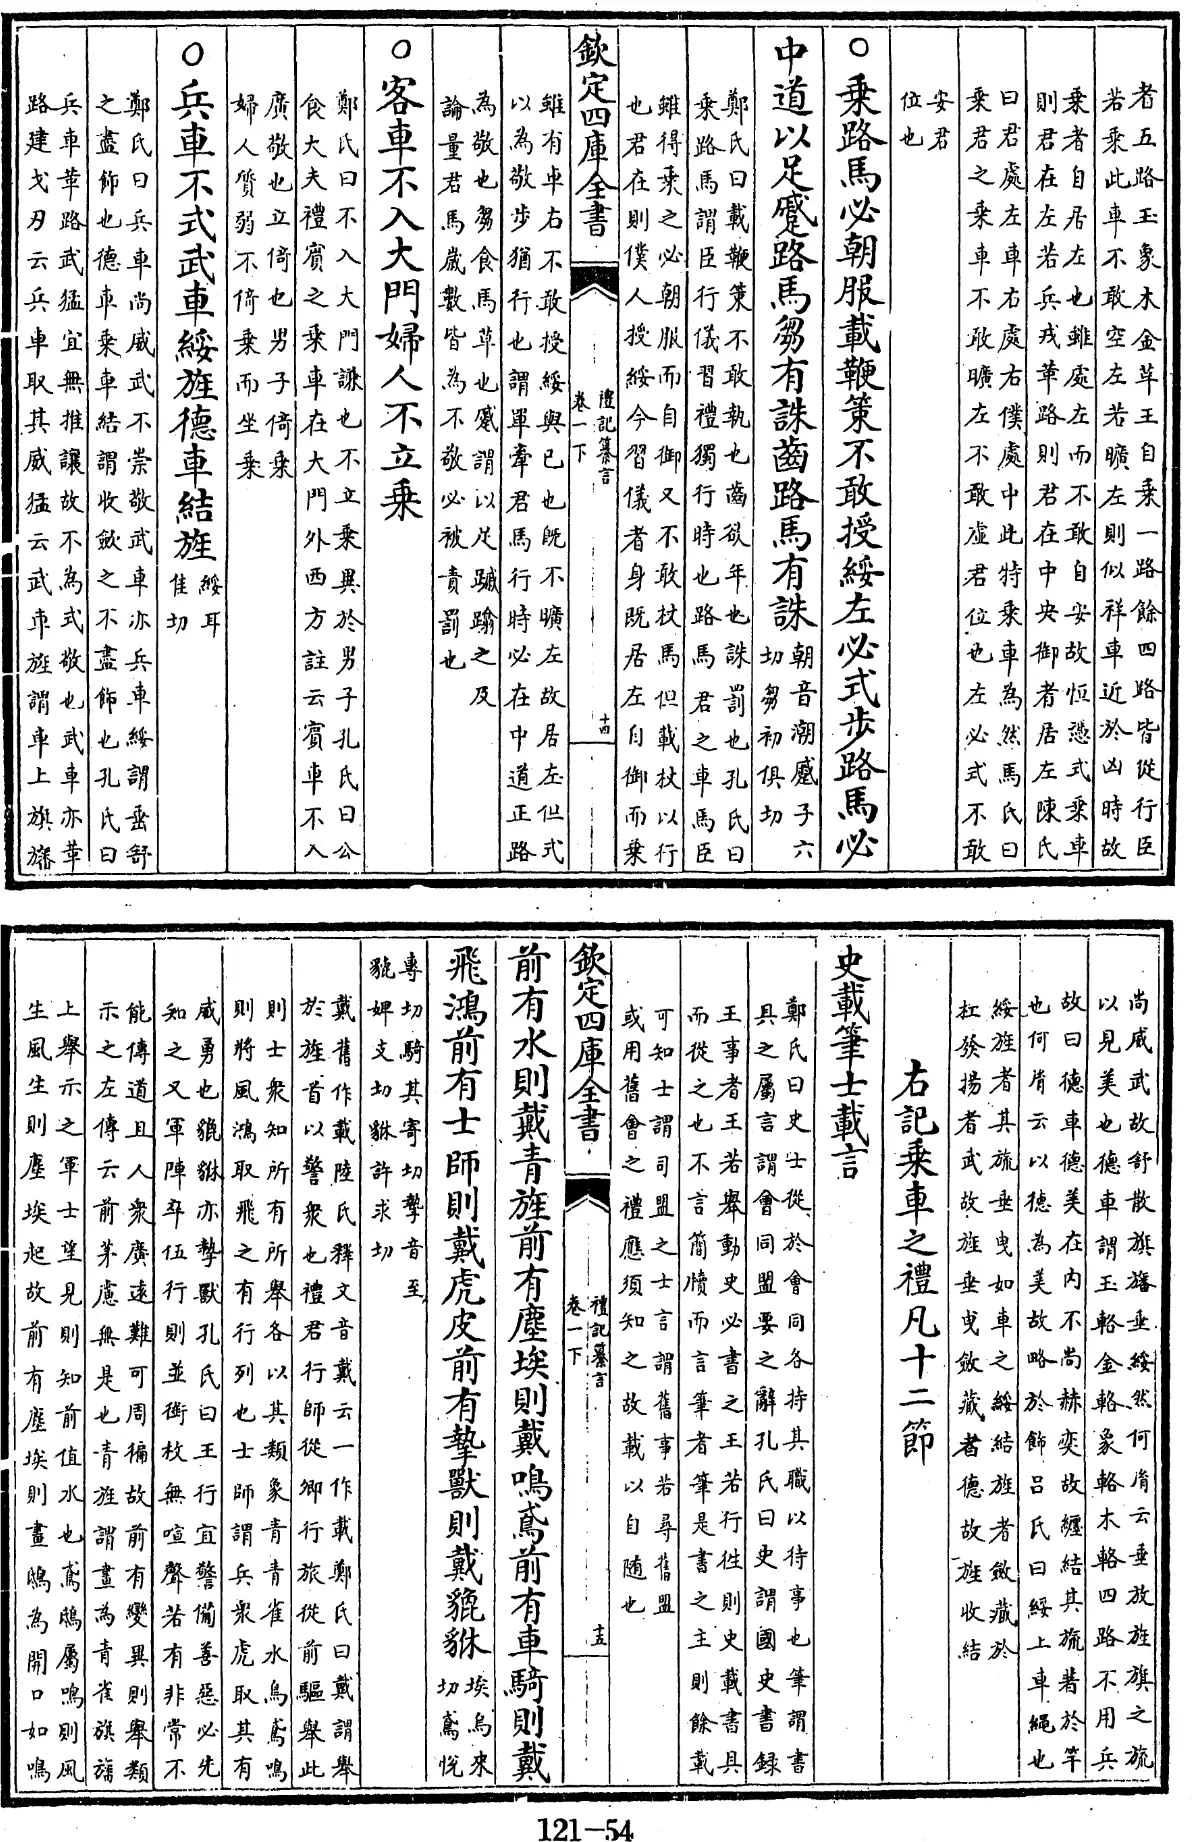 者五路玉象木金革王自乗一路餘四路皆從行臣
若乗此車不敢空左若曠左則似祥車近於凶時故
乗者自居左也雖處左而不敢自安故恒憑式乗車
則君在左若兵戎革路則君在中央御者居左陳氏
曰君處左車右處右僕處中此特乗車為然馬氏曰
乗君之乗車不敢曠左不敢虛君位也左必式不敢
安君
位也
○乗路馬必朝服載鞭策不敢授綏左必式步路馬必
中道以足蹙路馬芻有誅齒路馬有誅
朝音潮蹙子六
切芻初俱切
鄭氏曰載鞭策不敢執也齒欲年也誅罰也孔氏曰
乗路馬謂臣行儀習禮獨行時也路馬君之車馬臣
雖得乗之必朝服而自御又不敢杖馬但載杖以行
也君在則僕人授綏今習儀者身既居左自御而乗
欽定四庫全書
禮記纂言
卷一下
十四
雖有車右不敢授綏與已也既不曠左故居左但式
以為敬步猶行也謂單牽君馬行時必在中道正路
為敬也芻食馬草也蹙謂以足蹴蹋之及
論量君馬嵗數皆為不敬必被責罰也
○客車不入大門婦人不立乗
鄭氏曰不入大門謙也不立乗異於男子孔氏曰公
食大夫禮賓之乗車在大門外西方註云賓車不入
廣敬也立倚也男子倚乗
婦人質弱不倚乗而坐乗
○兵車不式武車綏旌德車結旌
綏耳
隹切
鄭氏曰兵車尚威武不崇敬武車亦兵車綏謂垂舒
之盡飾也德車乗車結謂收斂之不盡飾也孔氏曰
兵車革路武猛宜無推讓故不為式敬也武車亦革
路建戈刃云兵車取其威猛云武車旌謂車上旗旛
尚威武故舒散旗旛垂綏然何𦙍云垂放旌旗之旒
以見美也德車謂玉輅金輅象輅木輅四路不用兵
故曰德車德美在內不尚赫奕故纒結其旒著於竿
也何𦙍云以德為美故略於飾呂氏曰綏上車繩也
綏旌者其旒垂曳如車之綏結旌者斂藏於
杠發揚者武故旌垂曳斂藏者德故旌收結
右記乗車之禮凡十二節
史載筆士載言
鄭氏曰史士從於會同各持其職以待事也筆謂書
具之屬言謂會同盟要之辭孔氏曰史謂國史書録
王事者王若舉動史必書之王若行徃則史載書具
而從之也不言簡牘而言筆者筆是書之主則餘載
可知士謂司盟之士言謂舊事若尋舊盟
或用舊會之禮應須知之故載以自随也
欽定四庫全書
禮記纂言
卷一下
十五
前有水則戴青旌前有塵埃則戴鳴鳶前有車騎則戴
飛鴻前有士師則戴虎皮前有摯獸則戴貔貅
埃烏來
切鳶悦
專切騎其寄切摯音至
貔婢支切貅許求切
戴舊作載陸氏釋文音戴云一作載鄭氏曰戴謂舉
於旌首以警衆也禮君行師從卿行旅從前驅舉此
則士衆知所有所舉各以其類象青青雀水鳥鳶鳴
則將風鴻取飛之有行列也士師謂兵衆虎取其有
威勇也貔貅亦摯獸孔氏曰王行宜警備善惡必先
知之又軍陣卒伍行則並銜枚無喧聲若有非常不
能傳道且人衆廣遠難可周徧故前有變異則舉類
示之左傳云前茅慮無是也青旌謂畫為青雀旗旛
上舉示之軍士望見則知前值水也鳶鴟屬鳴則風
生風生則塵埃起故前有塵埃則畫鴟為開口如鳴
121—54